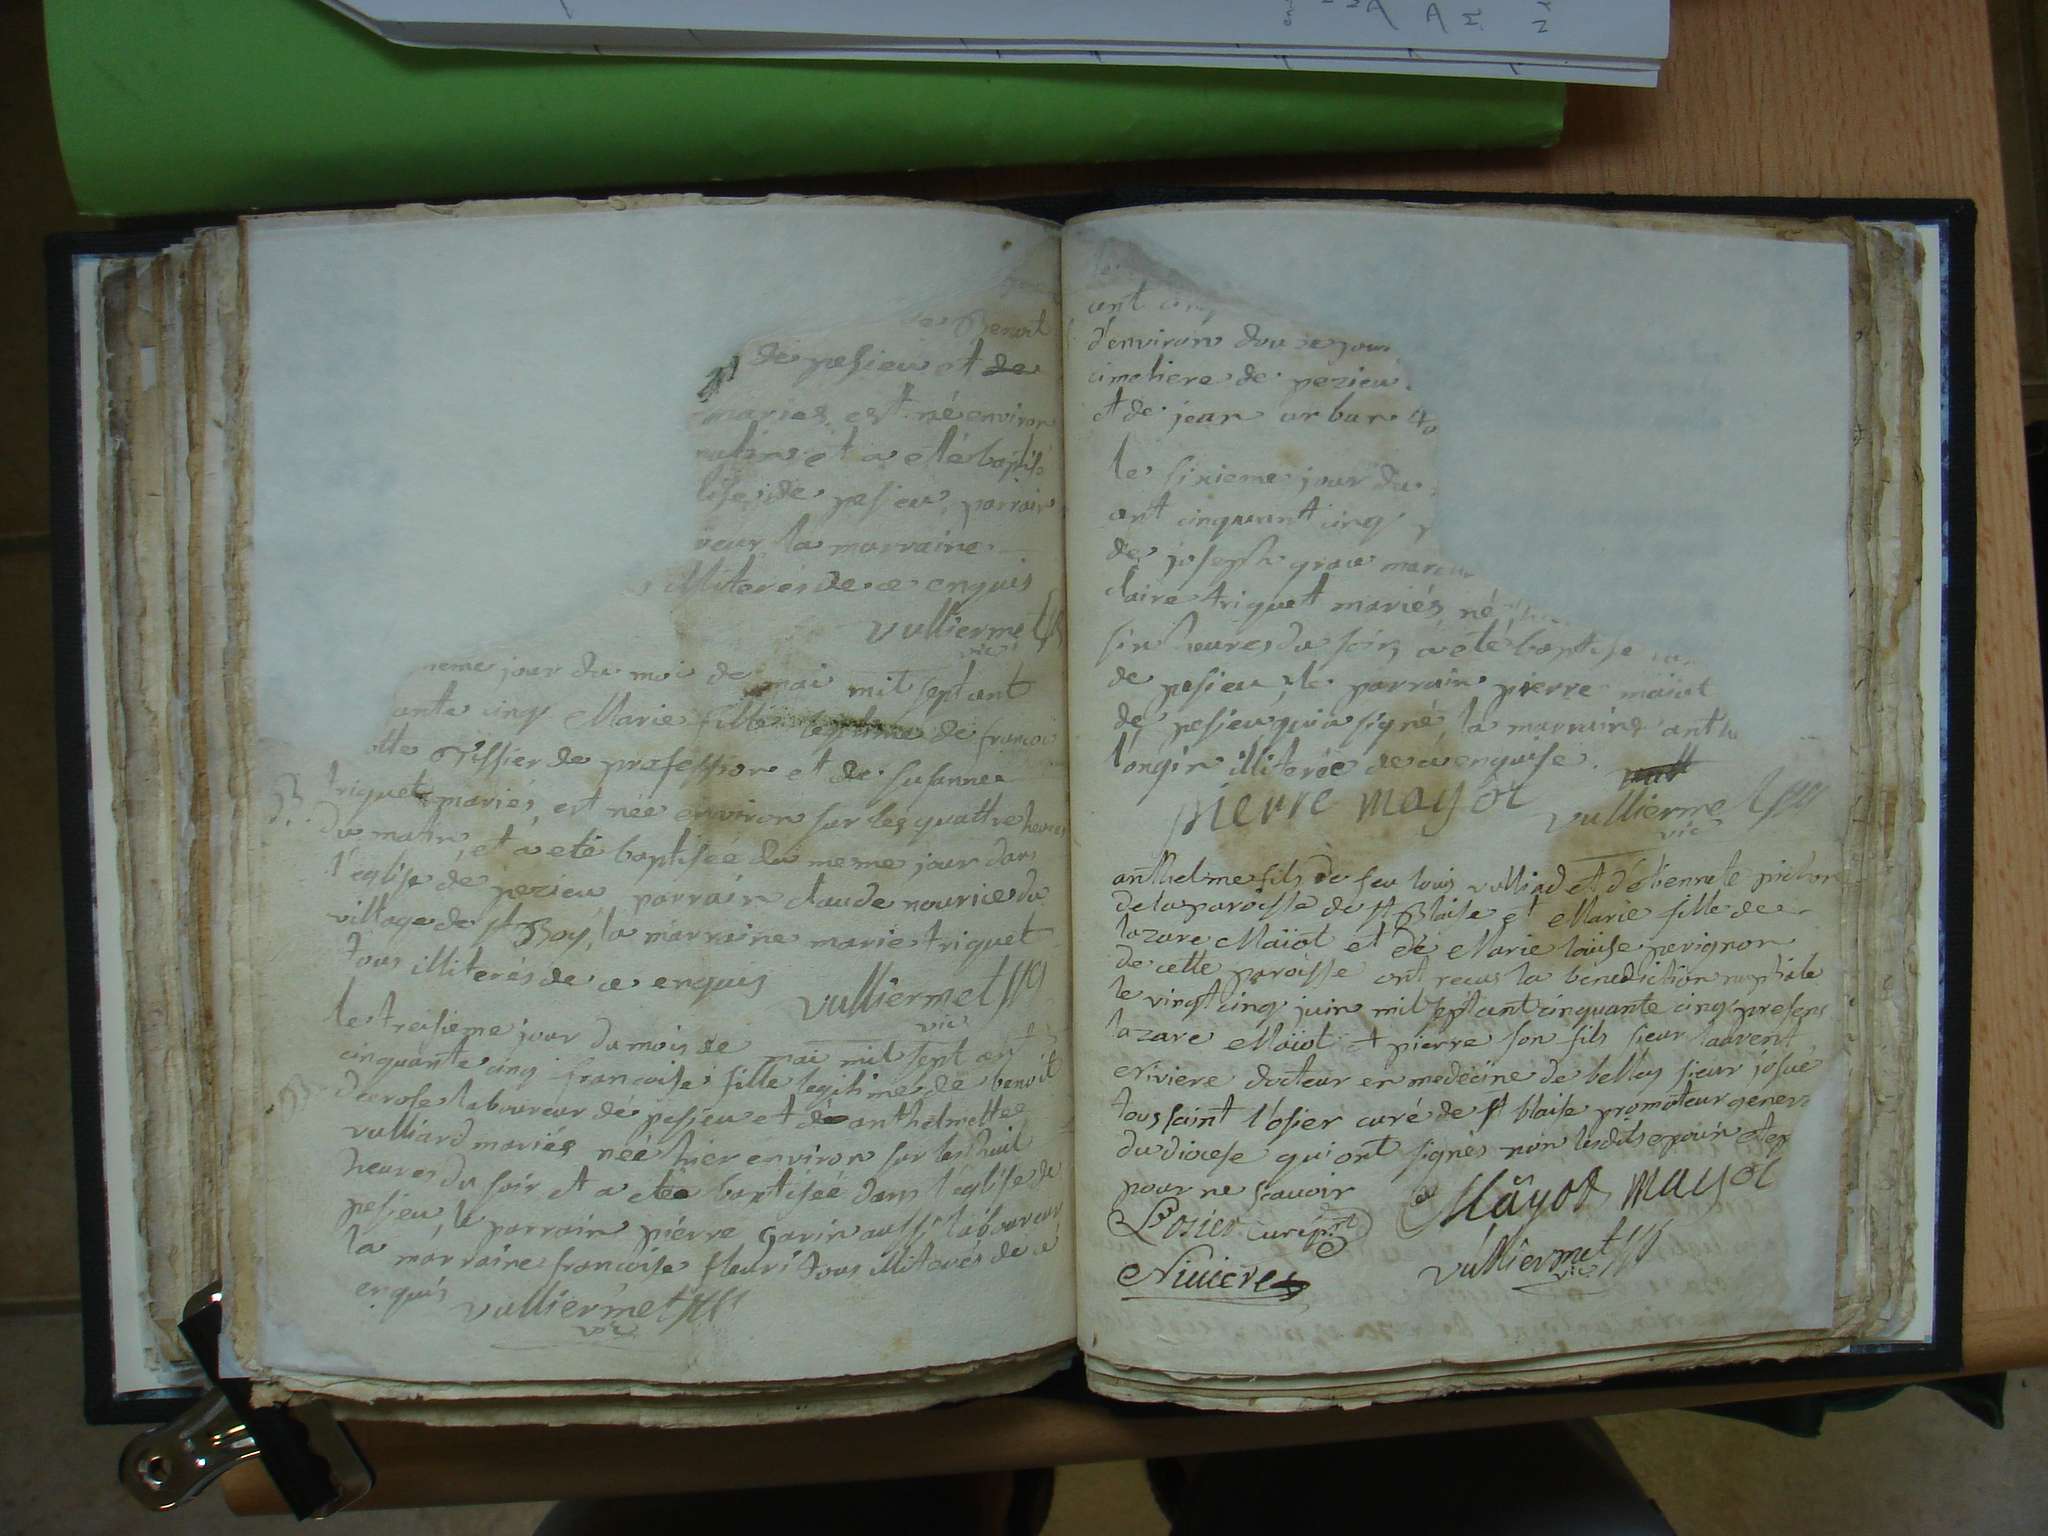 de Benoit
de pesieu et de
mariés est né environ
matins et a esté baptisé
lise de pesieu, parrain
la marraine
illiterés de ce enquis
vulliermet
vic
neme jour du moi de mai mil sept cent
ante cinq Marie fille legitime de francoi
tte tissier de profession et de susanne
triquet mariés, est née environ sur les quattre heures
du matin, et a eté baptisée du meme jour dans
l'eglise de pezieu parrain claude nourice du
village de st Boy, la marraine marie triquet
tous illiterés de ce enquis
vulliermet
vic
le treisieme jour du mois de mai mil sept cent
cinquante cinq francoise fille legitime de benoit
derose laboureur de pesieu et de anthelmette
vulliard mariés née hier environ sur les huit
heures du soir et a eté baptisée dans l'eglise de
pesieu, le parrain pierre garin aussi laboureur
la marraine francoise fleuri tous illiterés de ce
enquis vulliermet
vic
le
cent cinq
d'environ douze jour
cimetiere de pezieu
et de jean urbar
le sixieme jour du
cent cinquant cinq
de joseph
claire triquet mariés, né
six heures du soir, a eté baptise
de pesieu, le parrain pierre maiot
de pesieu qui a signé, la marraine anth
longin illiterée de ce enquise.
pierre mayot vulliermet
vic
anthelme fils de feu louis vulliod et d'etiennete pichon
de la paroisse de st Blaise et Marie fille de
lazare Maiot et de Marie louise perignon
de cette paroisse ont recus la benediction nuptiale
le vingt cinq juin mil sept cent cinquante cinq presens
lazare Maiot et pierre son fils sieur laurent
Niviere docteur en medecine de belley sieur josué
toussaint losier curé de st blaise promoteur genera
du diocese qui ont signés non lesdits epoux
pour ne scavoir
Losier curé Mâyot mayot
Niviere vulliermet
vic